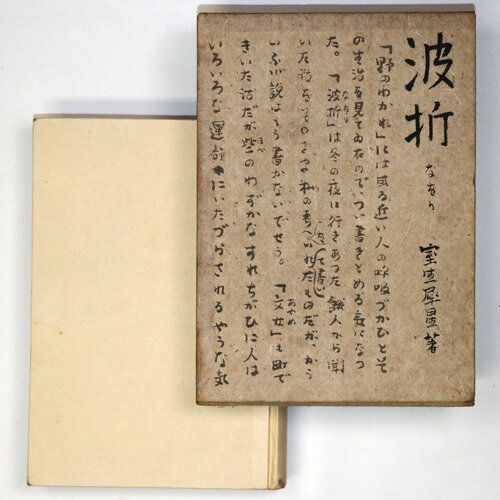 波折
なをり
室生犀星著
「野のわかれ」には或る近い人の呼吸づかひとそ
の生活を見てゐたのでつい書きとめる気になつ
た。「波折」は冬の夜に行きあつた 人から聞
なをり
いた話を 私の考へ いれたものだが、かう
いふ小説はもう書かないでせう。「文女」も町で
あやめ
きいた話だが些のわずかなすれちがひに人は
いろいろな運命にいたづらされるやうな気